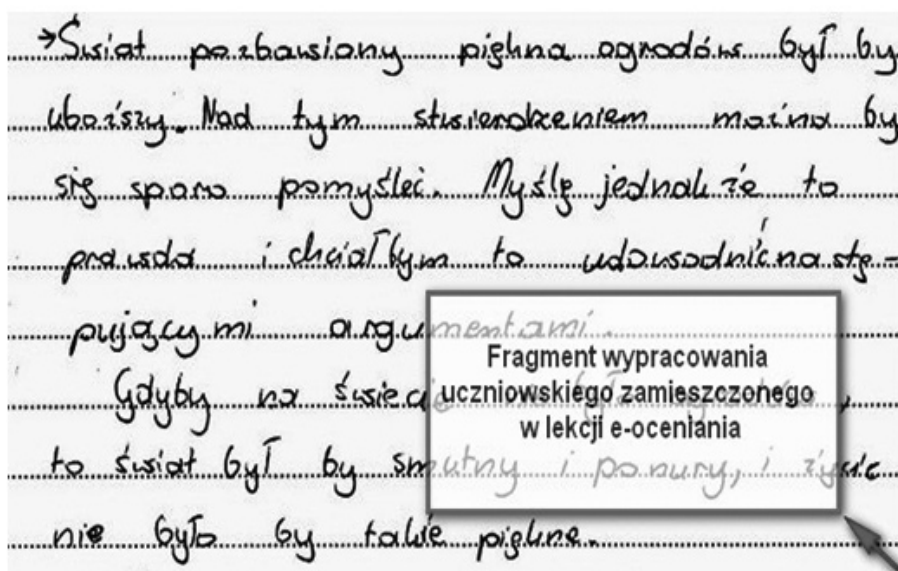 →Świat pozbawiony piękna ogrodów był by
uboższy. Nad tym stwierdzeniem można by
się sporo pomyśleć. Myślę jednak że to
prawda i chciałbym to udowodnić nastę-
pującymi argumentami.
Gdyby na świecie nie było ogrodów,
to świat był by smutny i ponury, i życie
nie było by takie piękne.
Fragment wypracowania
uczniowskiego zamieszczonego
w lekcji e-oceniania